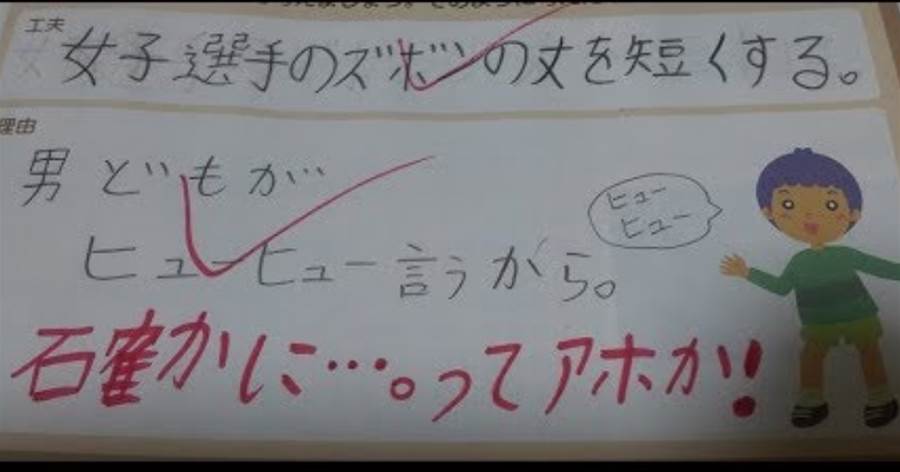 工夫
女子選手のズボンの丈を短くする。
理由
男どもが
ヒューヒュー言うから。
ヒュー
ヒュー
確かに…。ってアホか!!